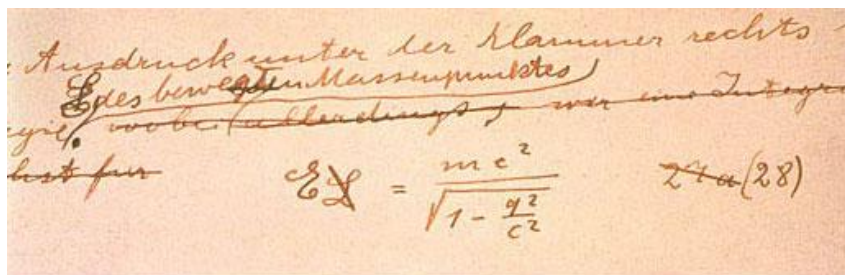 Ausdruck unter der Klammer rechts
L des bewegten Massenpunktes
gie, wobei (allerdings, wir eine Integra
hst für
E L = mc² / √(1 - q²/c²) 27a (28)